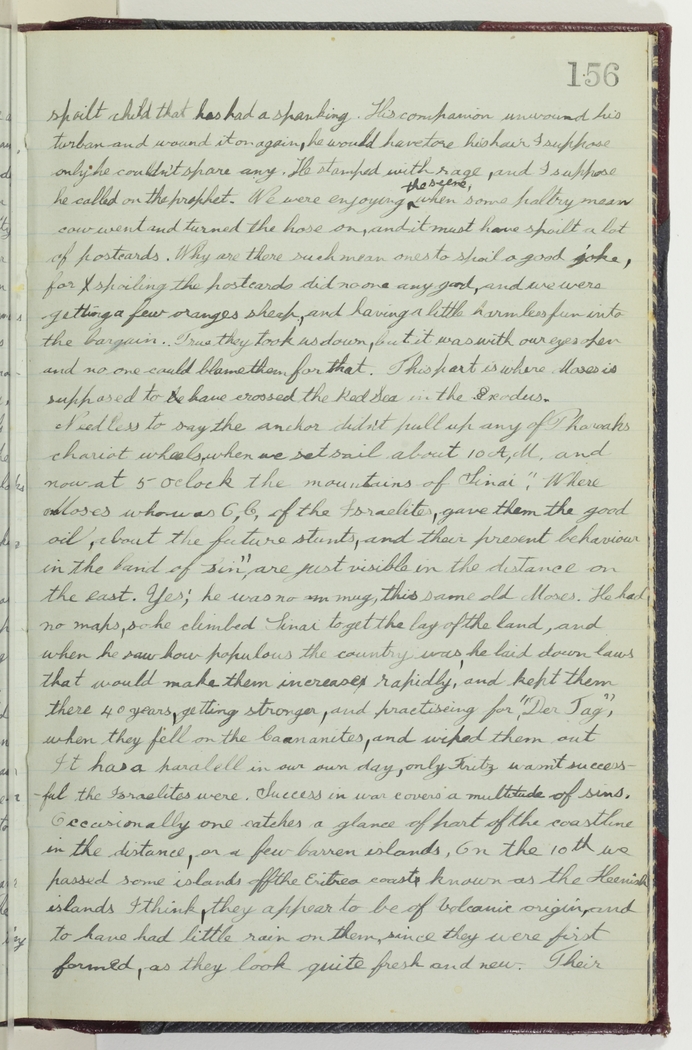 156
spoilt child that has had a spanking. His companion unwound his
turban and wound it on again, he would have tore his hair I suppose
only he couldn't spare any. He stamped with rage, and I suppose
he called on the prophet. We were enjoying the scene, when some paltry mean
cow went and turned the hose on, and it must have spoilt a lot
of postcards. Why are there such mean ones to spoil a good joke,
for spoiling the postcards did no one any good, and we were
getting a few oranges sheep, and having a little harmless fun into
the bargain. True they took us down, but it was with our eyes open
and no one could blame them for that. This part is where Moses is
supposed to have crossed the Red Sea in the Exodus.
Needless to say the anchor didn't pull up any of Pharoahs
chariot wheels, when we set sail about 10 A.M. and
now at 5 oclock the mountains of "Sinai", Where
Moses who was O,C, of the Israelites, gave them the good
oil, about the future stunts, and their present behaviour
in the land of sin", are just visible in the distance on
the east. Yes; he was no mug, this same old Moses. He had
no maps, so he climbed Sinai to get the lay of the land, and
when he saw how populous the country was, he laid down laws
that would make them increase rapidly, and kept them
there 40 years, getting stronger, and practiseing for, "Der Tag",
when they fell on the Caananites, and wiped them out
It has a paralell in our own day, only Fritz wasn't success-
-ful the Israelites were. Success in war covers a multitude of sins.
Occasionally one catches a glance of part of the coastline
in the distance, or a few barren islands. On the 10th we
passed some islands off the Eritrea coast known as the
islands I think, they appear to be of Volcanic origin, and
to have had little rain on them, since they were first
formed, as they look quite fresh and new. Their